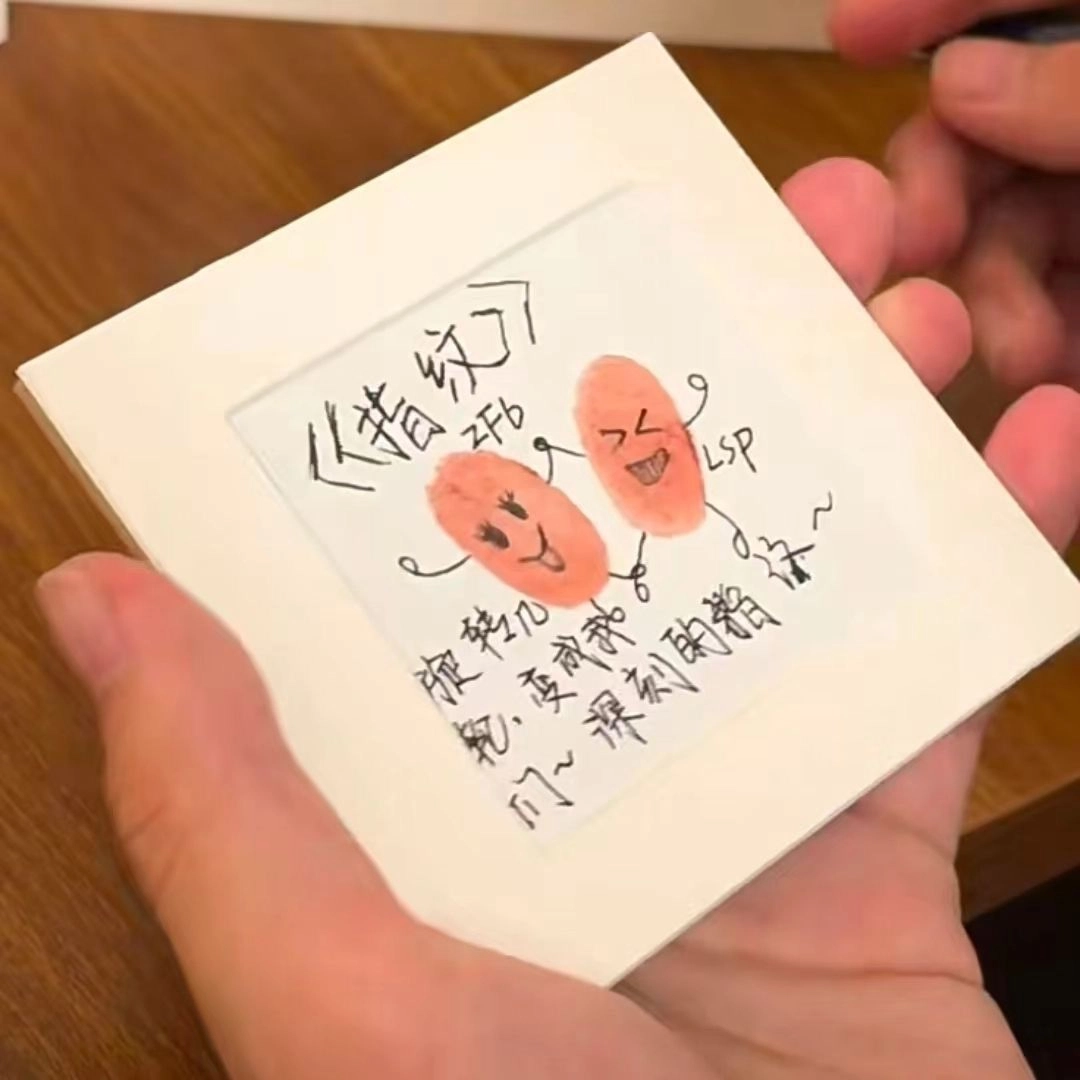 《指纹》
ZFb
LSP
旋转几
轮、变成我
们~深刻的指纹~